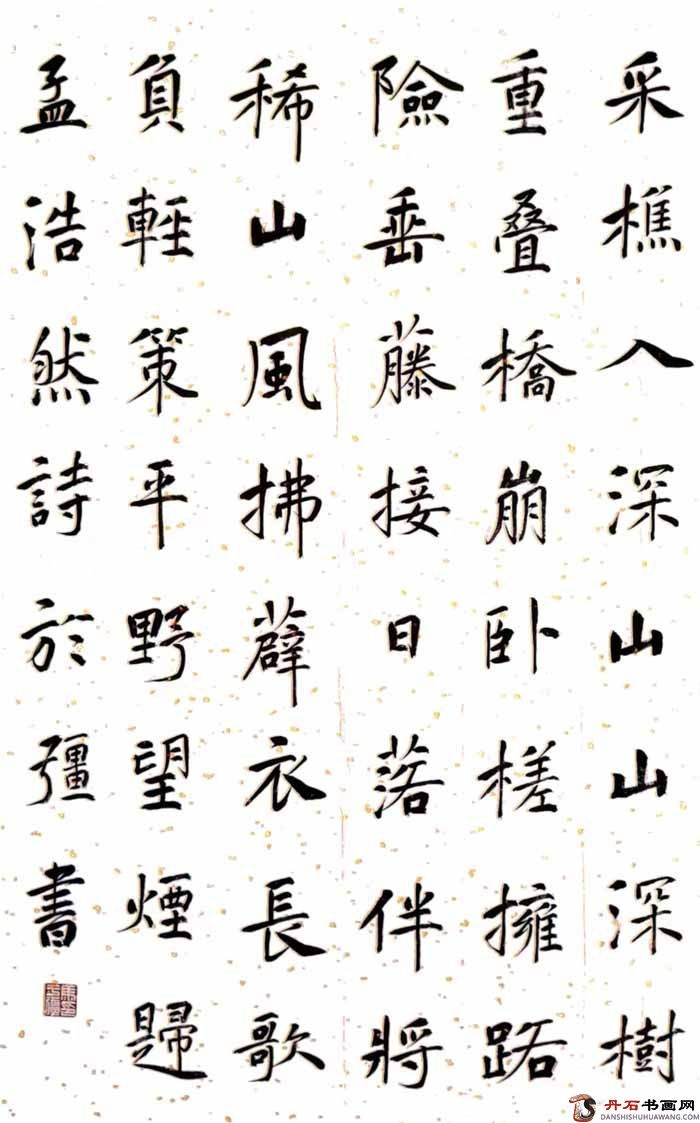 采樵入深山山深樹
重叠橋崩卧槎擁路
險垂藤接日落伴將
稀山風拂薜衣長歌
負輕策平野望煙歸
孟浩然詩於彊書
丹石书画网
DANSHISHUHUAWANG.COM